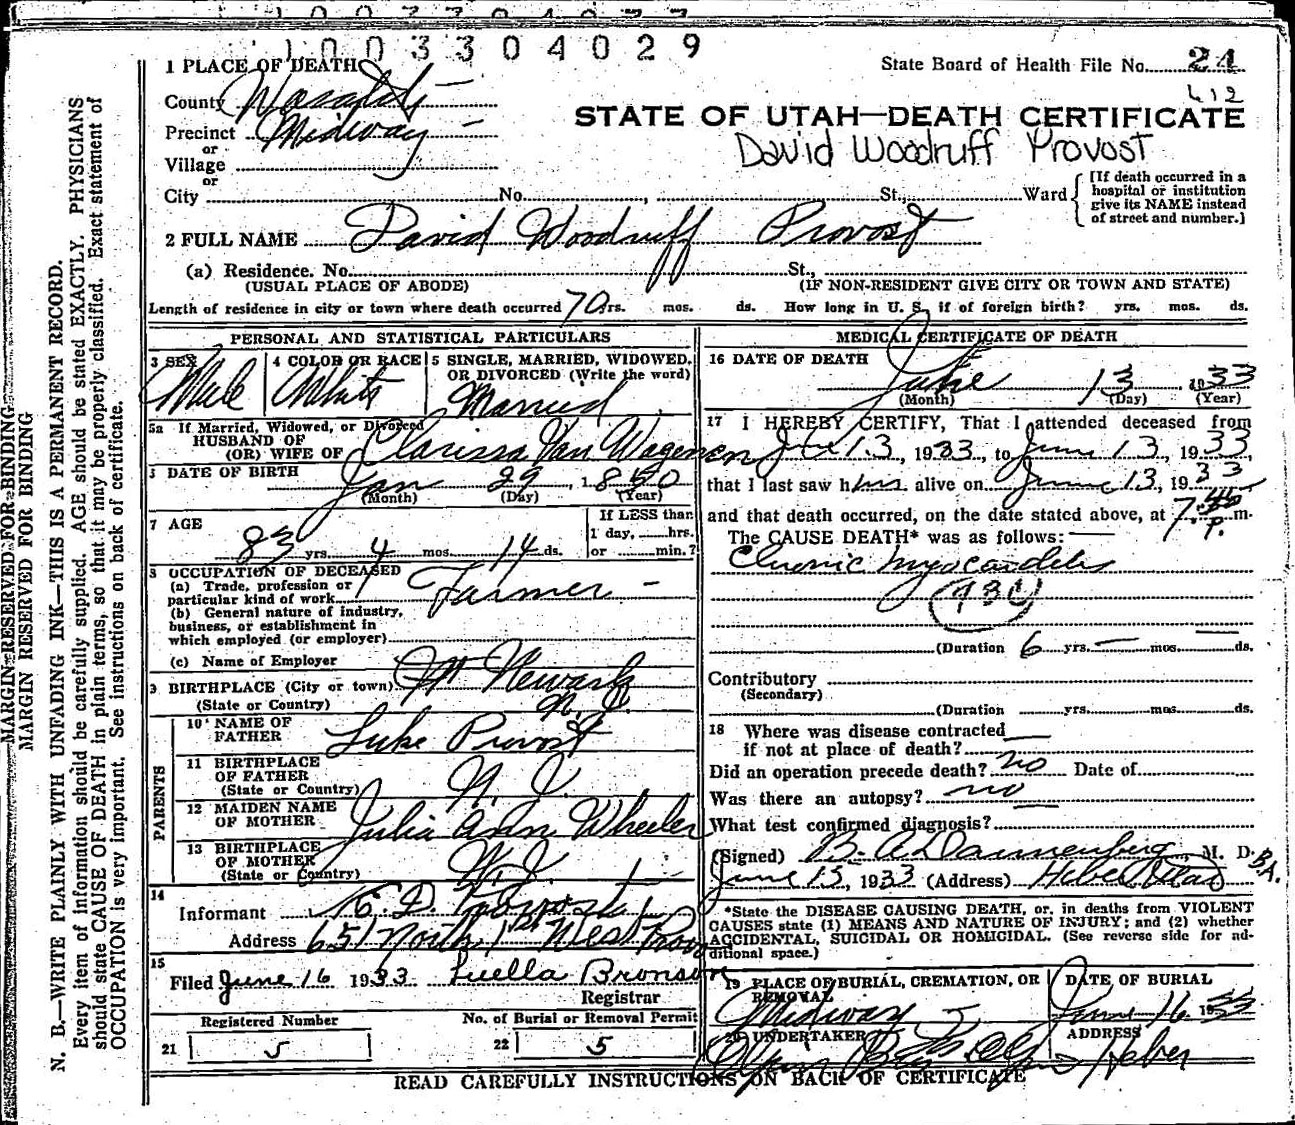 1003304029
1 PLACE OF DEATH
State Board of Health File No. 24
612
County Wasatch
STATE OF UTAH—DEATH CERTIFICATE
Precinct Midway
David Woodruff Provost
or
Village
or
City No. , St. Ward
[If death occurred in a
hospital or institution
give its NAME instead
of street and number.]
2 FULL NAME David Woodruff Provost
(a) Residence. No. St.,
(USUAL PLACE OF ABODE) (IF NON-RESIDENT GIVE CITY OR TOWN AND STATE)
Length of residence in city or town where death occurred 70 yrs. mos. ds. How long in U. S. if of foreign birth? yrs. mos. ds.
PERSONAL AND STATISTICAL PARTICULARS
3 SEX 4 COLOR OR RACE 5 SINGLE, MARRIED, WIDOWED,
OR DIVORCED (Write the word)
Male White Married
5a If Married, Widowed, or Divorced
HUSBAND OF
(OR) WIFE OF Clarissa Van Wagenen
DATE OF BIRTH Jan 29, 1850
(Month) (Day) (Year)
7 AGE
83 yrs. 4 mos. 14 ds.
If LESS than
1 day, hrs.
or min.?
8 OCCUPATION OF DECEASED
(a) Trade, profession or
particular kind of work Farmer
(b) General nature of industry,
business, or establishment in
which employed (or employer)
(c) Name of Employer
9 BIRTHPLACE (City or town) Newark
(State or Country) N. J.
PARENTS
10 NAME OF
FATHER Luke Provost
11 BIRTHPLACE
OF FATHER
(State or Country) N. J.
12 MAIDEN NAME
OF MOTHER Julia Ann Wheeler
13 BIRTHPLACE
OF MOTHER
(State or Country) N. J.
14
Informant E. D. Provost
Address 651 North 1st West Provo
15
Filed June 16 1933 Luella Bronson
Registrar
Registered Number No. of Burial or Removal Permit
21 5 22 5
MEDICAL CERTIFICATE OF DEATH
16 DATE OF DEATH
June 13, 1933
(Month) (Day) (Year)
17 I HEREBY CERTIFY, That I attended deceased from
13, 1933, to June 13, 1933,
that I last saw him alive on June 13, 1933
and that death occurred, on the date stated above, at 7 P. m.
The CAUSE DEATH* was as follows:
Chronic Myocarditis
(Duration 6 yrs. mos. ds.
Contributory
(Secondary)
(Duration yrs. mos. ds.
18 Where was disease contracted
if not at place of death?
Did an operation precede death? no Date of
Was there an autopsy? no
What test confirmed diagnosis?
(Signed) B. A. Dannenberg, M. D. B.A.
June 15, 1933 (Address) Heber Utah
*State the DISEASE CAUSING DEATH, or, in deaths from VIOLENT
CAUSES state (1) MEANS AND NATURE OF INJURY; and (2) whether
ACCIDENTAL, SUICIDAL OR HOMICIDAL. (See reverse side for ad-
ditional space.)
19 PLACE OF BURIAL, CREMATION, OR
REMOVAL
Midway
DATE OF BURIAL
June 16 1933
20 UNDERTAKER ADDRESS
Heber
READ CAREFULLY INSTRUCTIONS ON BACK OF CERTIFICATE
MARGIN RESERVED FOR BINDING
MARGIN RESERVED FOR BINDING
N. B.—WRITE PLAINLY WITH UNFADING INK—THIS IS A PERMANENT RECORD.
Every item of information should be carefully supplied. AGE should be stated EXACTLY. PHYSICIANS
should state CAUSE OF DEATH in plain terms, so that it may be properly classified. Exact statement of
OCCUPATION is very important. See instructions on back of certificate.